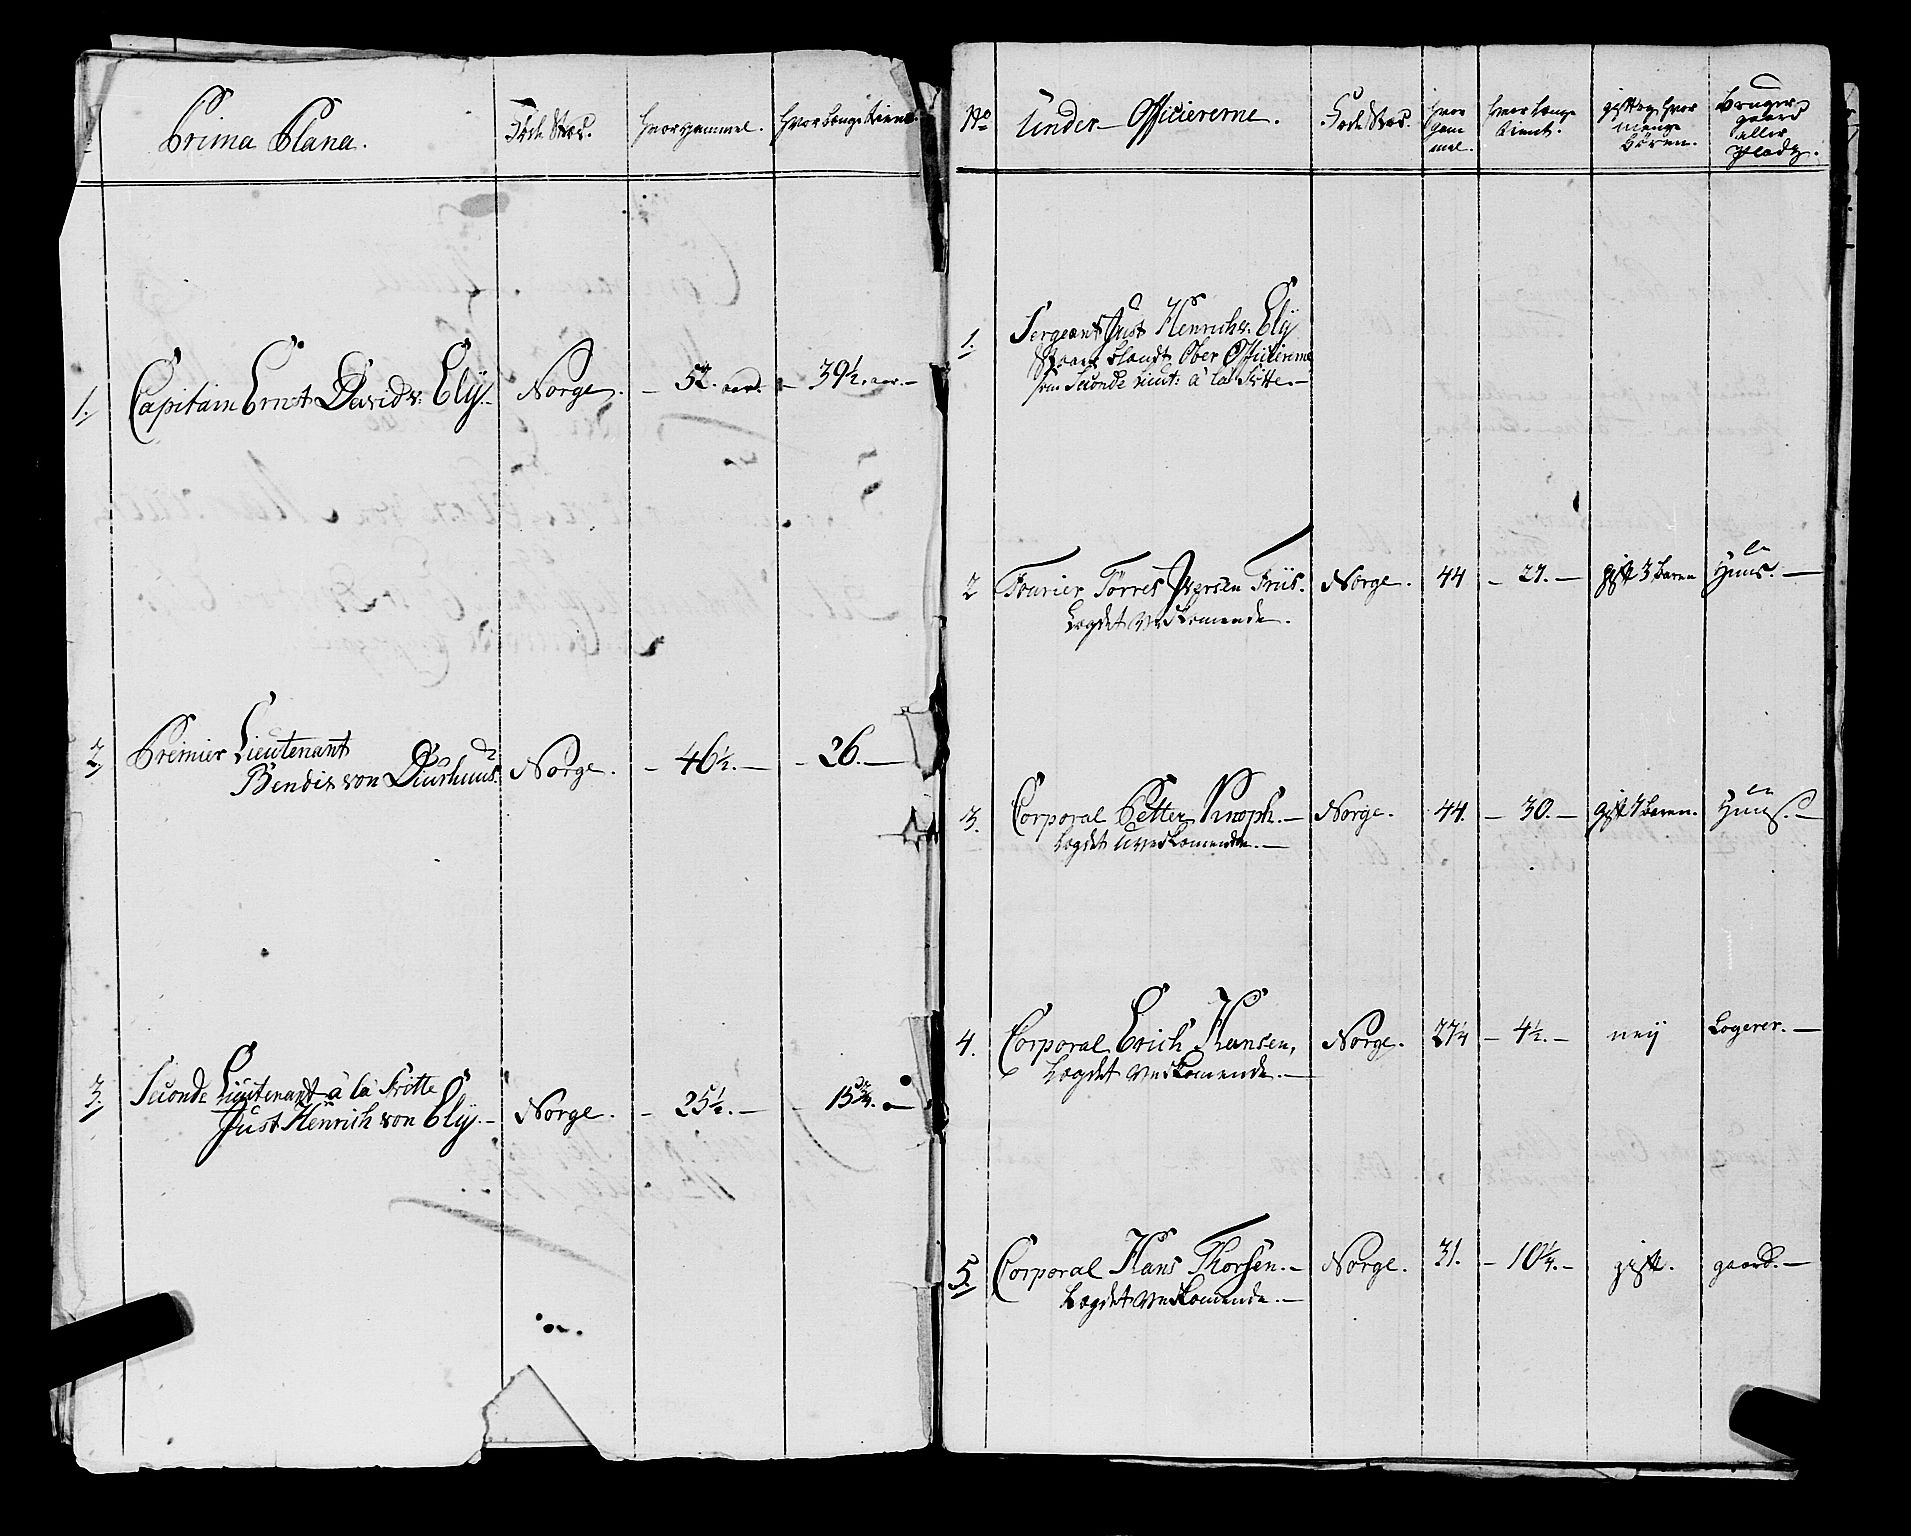 Prima Plana.
Føde Stæd.
hvor gammel.
hvor længe tient.
1.
Capitain Ernst David v: Elÿ.
Norge.
52. aar.
39½. aar.
2.
Premier Lieutenant
Bendix von Duurhuus.
Norge.
46½.
26.
3.
Seconde Lieutenant à la Suitte
Just Henrich von Elÿ.
Norge.
25½.
15¾.
No
Under Officiererne.
Føde Stæd.
hvor
gam
mel.
hvor længe
tient.
gift og hvor
mange
børen.
bruger
gaard
eller
Pladz.
1.
Sergeant Just Henrich v. Elÿ
staar blandt Ober Officirerne
som Seconde Lieut: à la Suitte.
2
Fourier Tørres Iversen Friis.
Lægdet uveskomende.
Norge.
44
27.
gift 3 børen
Huus.
3.
Corporal Petter Knoph.
Lægdet uveskomende.
Norge.
44.
30.
gift 7 børen.
Huus.
4.
Corporal Erich Hansen,
Lægdet uveskomende.
Norge.
27¼
4½.
neÿ
Logerer.
5.
Corporal Hans Thorsen.
Lægdet uveskomende.
Norge.
31.
10¼.
gift.
gaard.